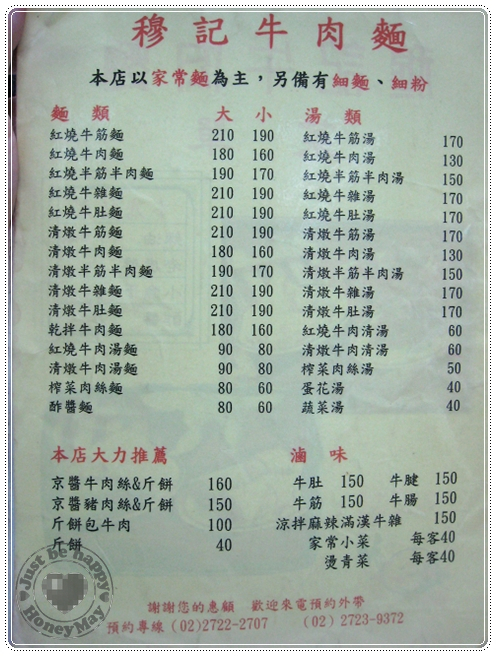 穆記牛肉麵
本店以家常麵為主，另備有細麵、細粉
麵 類 大 小
紅燒牛筋麵 210 190
紅燒牛肉麵 180 160
紅燒半筋半肉麵 190 170
紅燒牛雜麵 210 190
紅燒牛肚麵 210 190
清燉牛筋麵 210 190
清燉牛肉麵 180 160
清燉半筋半肉麵 190 170
清燉牛雜麵 210 190
清燉牛肚麵 210 190
乾拌牛肉麵 180 160
紅燒牛肉湯麵 90 80
清燉牛肉湯麵 90 80
榨菜肉絲麵 80 60
酢醬麵 80 60
湯 類
紅燒牛筋湯 170
紅燒牛肉湯 130
紅燒半筋半肉湯 150
紅燒牛雜湯 170
紅燒牛肚湯 170
清燉牛筋湯 170
清燉牛肉湯 130
清燉半筋半肉湯 150
清燉牛雜湯 170
清燉牛肚湯 170
紅燒牛肉清湯 60
清燉牛肉清湯 60
榨菜肉絲湯 50
蛋花湯 40
蔬菜湯 40
本店大力推薦
京醬牛肉絲&斤餅 160
京醬豬肉絲&斤餅 150
斤餅包牛肉 100
斤餅 40
滷 味
牛肚 150 牛腱 150
牛筋 150 牛腸 150
涼拌麻辣滿漢牛雜 150
家常小菜 每客40
燙青菜 每客40
謝謝您的惠顧 歡迎來電預約外帶
預約專線 (02)2722-2707 (02) 2723-9372
Just be happy
HoneyMay